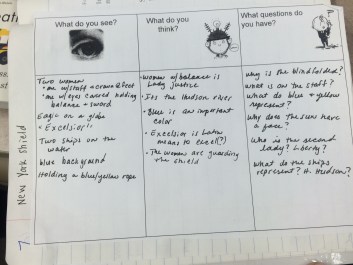 What do you see?
What do you
think?
What questions do
you have?
Two women
• one w/staff + crown @ feet
• one w/eyes covered holding
balance + sword
Eagle on a globe
"Excelsior"
Two ships on the
water
blue background
Holding a blue/yellow rope
• woman w/balance is
Lady Justice
• Its the Hudson river
• Blue is an important
color
• Excelsior is Latin
means to excel(?)
• The women are guarding
the shield
Why is she blindfolded?
What is on the staff?
What do blue + yellow
represent?
Why does the sun have
a face?
Who is the second
lady? Liberty?
What do the ships
represent? H. Hudson?
New York Shield